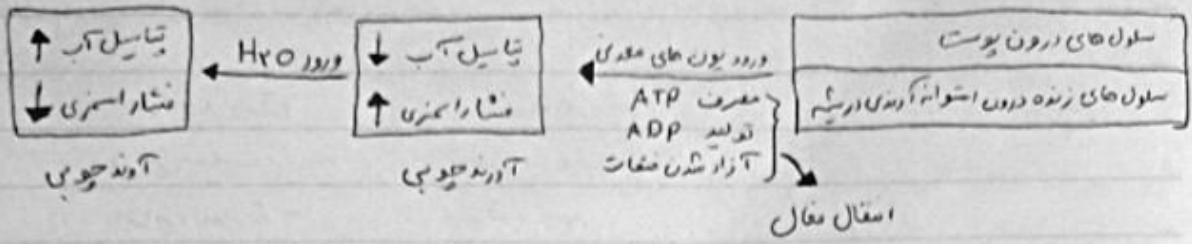 سلول های درون پوست
سلول های زنده درون استوانه آوندی در ریشه
ورود یون های معدنی
مصرف ATP
تولید ADP
آزاد شدن فسفات
انتقال فعال
پتاسیل آب ↓
فشار اسمزی ↑
آوند چوبی
ورود H۲O
پتاسیل آب ↑
فشار اسمزی ↓
آوند چوبی